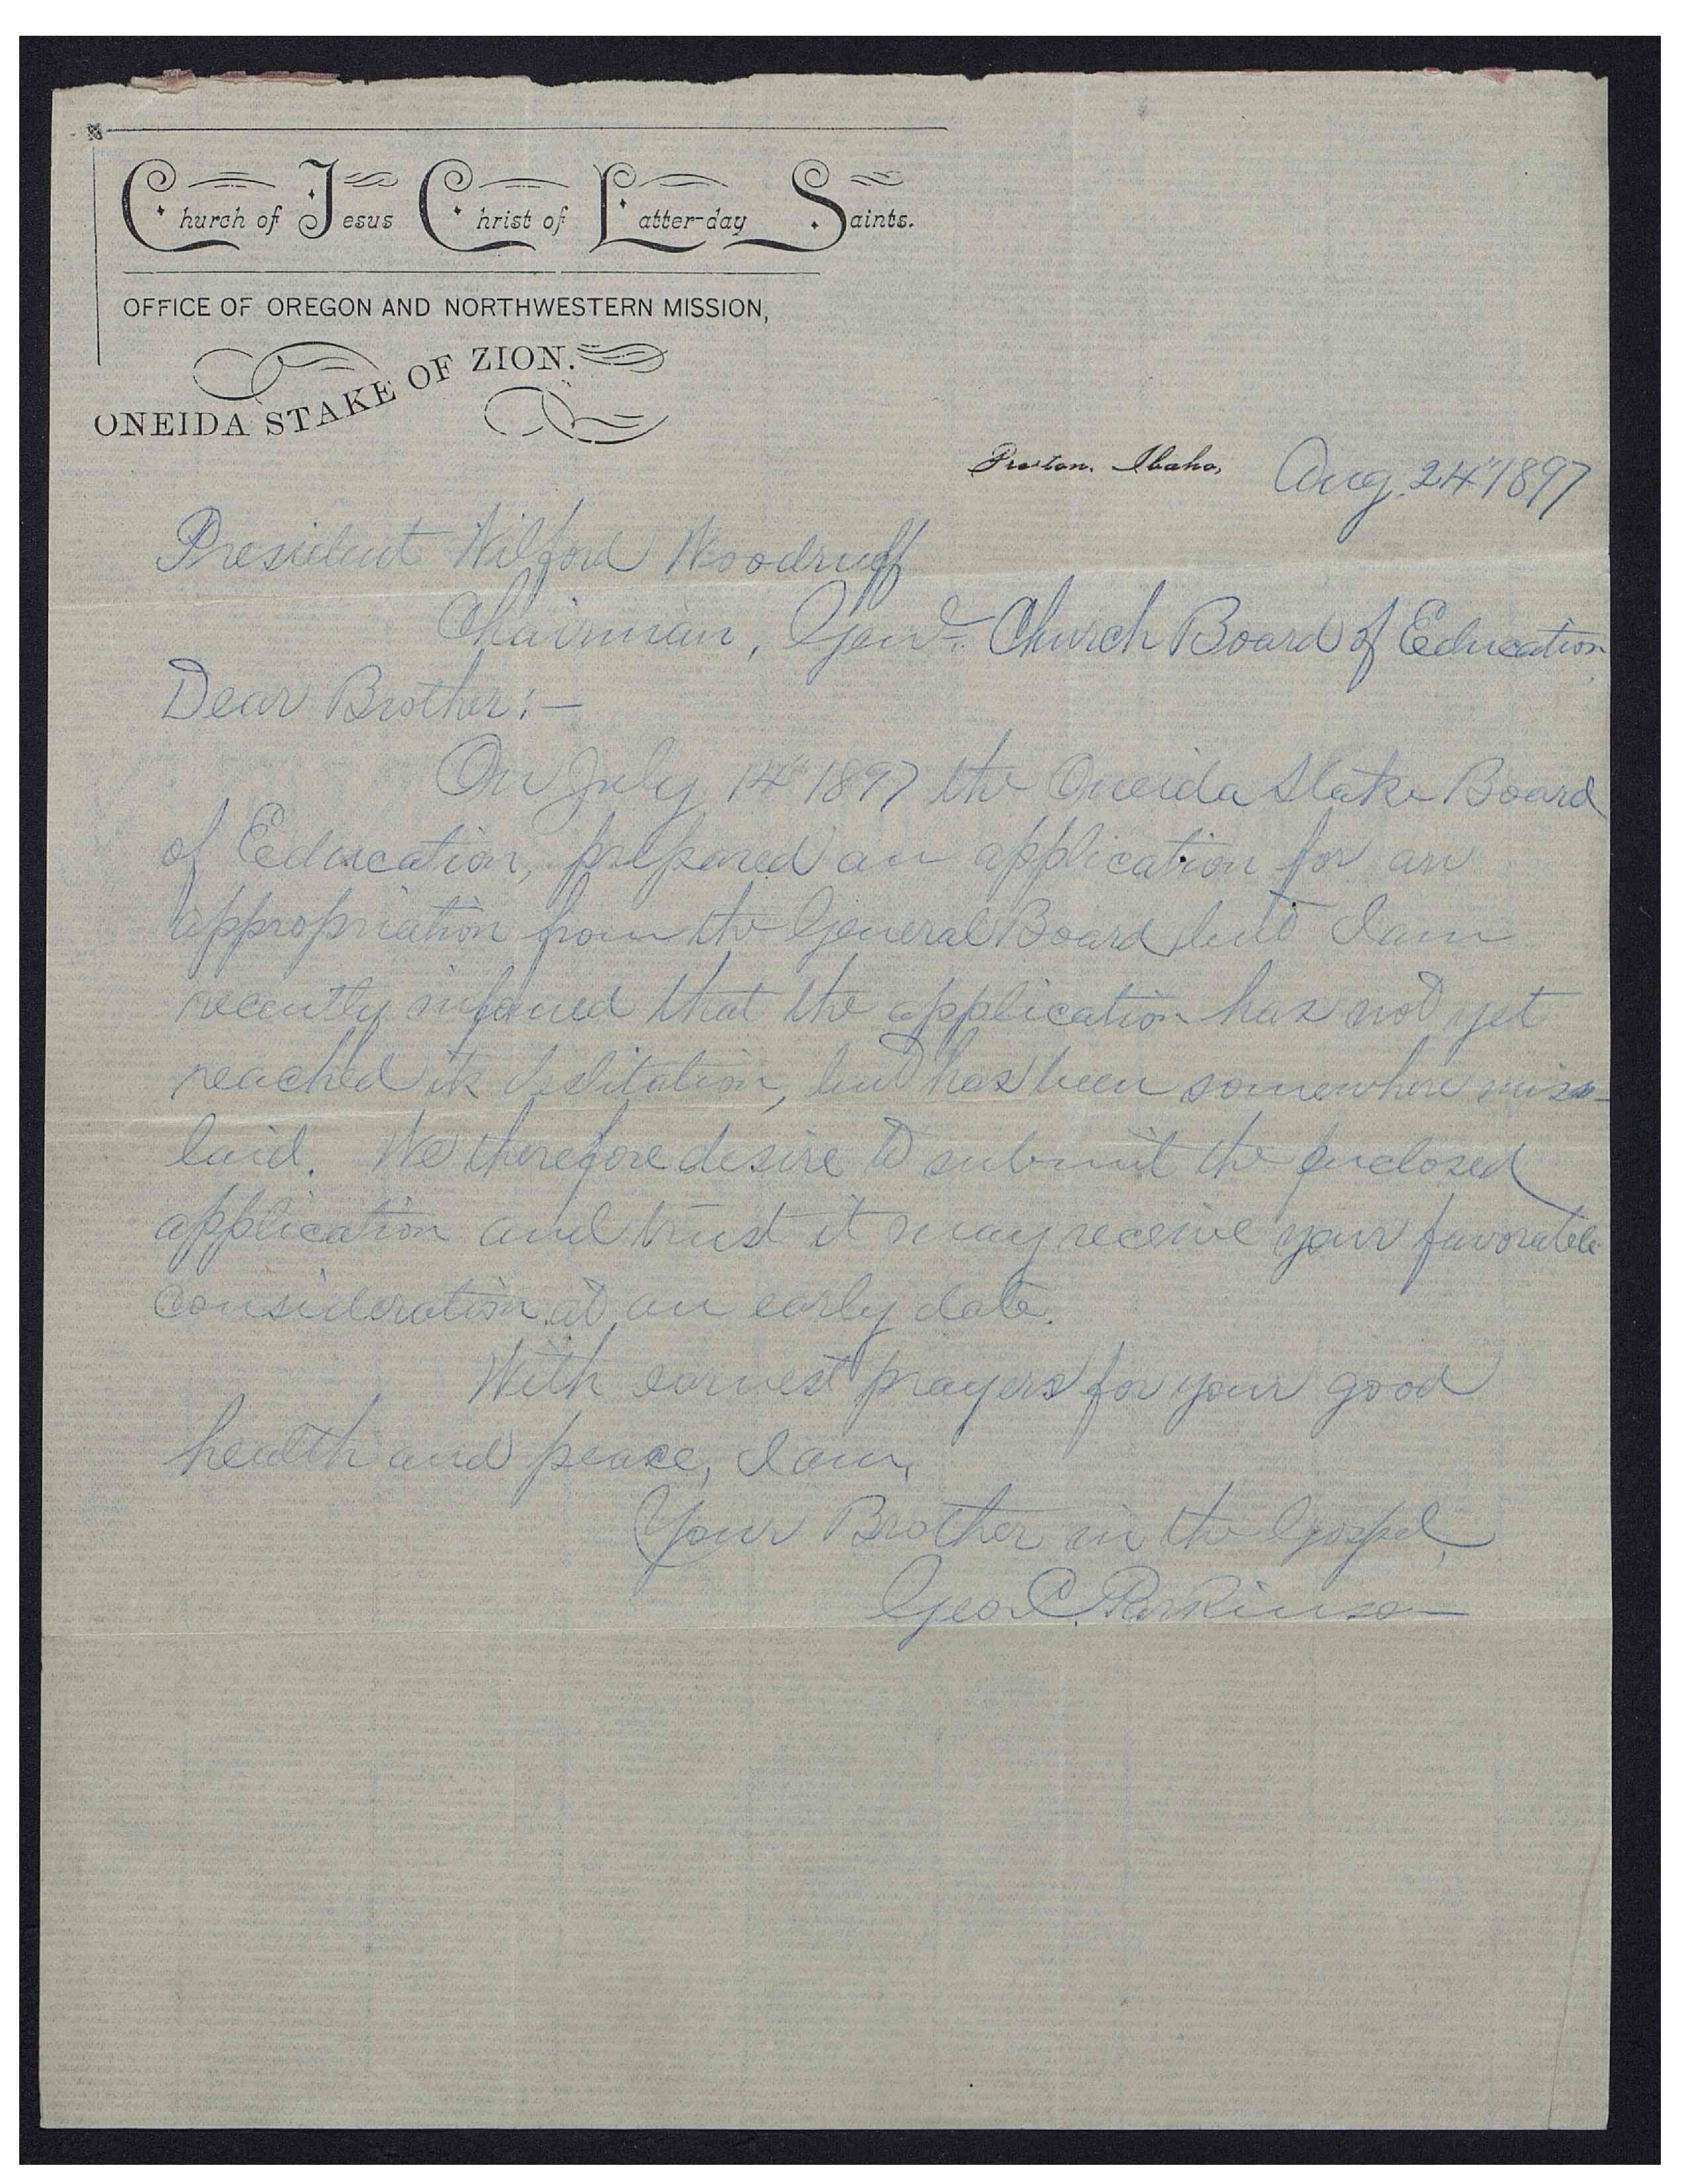 Church of Jesus Christ of Latter-day Saints.
OFFICE OF OREGON AND NORTHWESTERN MISSION,
ONEIDA STAKE OF ZION.
Preston, Idaho, Aug. 24" 1897
President Wilford Woodruff
Chairman, Gen'l. Church Board of Education
Dear Brother:—
On July 14" 1897 the Oneida Stake Board
of Education, prepared an application for an
appropriation from the General Board but I am
recently informed that the application has not yet
reached its destitation, but has been somewhere miss-
laid. We therefore desire to submit the enclosed
application and trust it may receive your favorable
consideration at an early date.
With earnest prayers for your good
health and peace, I am,
Your Brother in the Gospel,
Geo. C. Parkinson